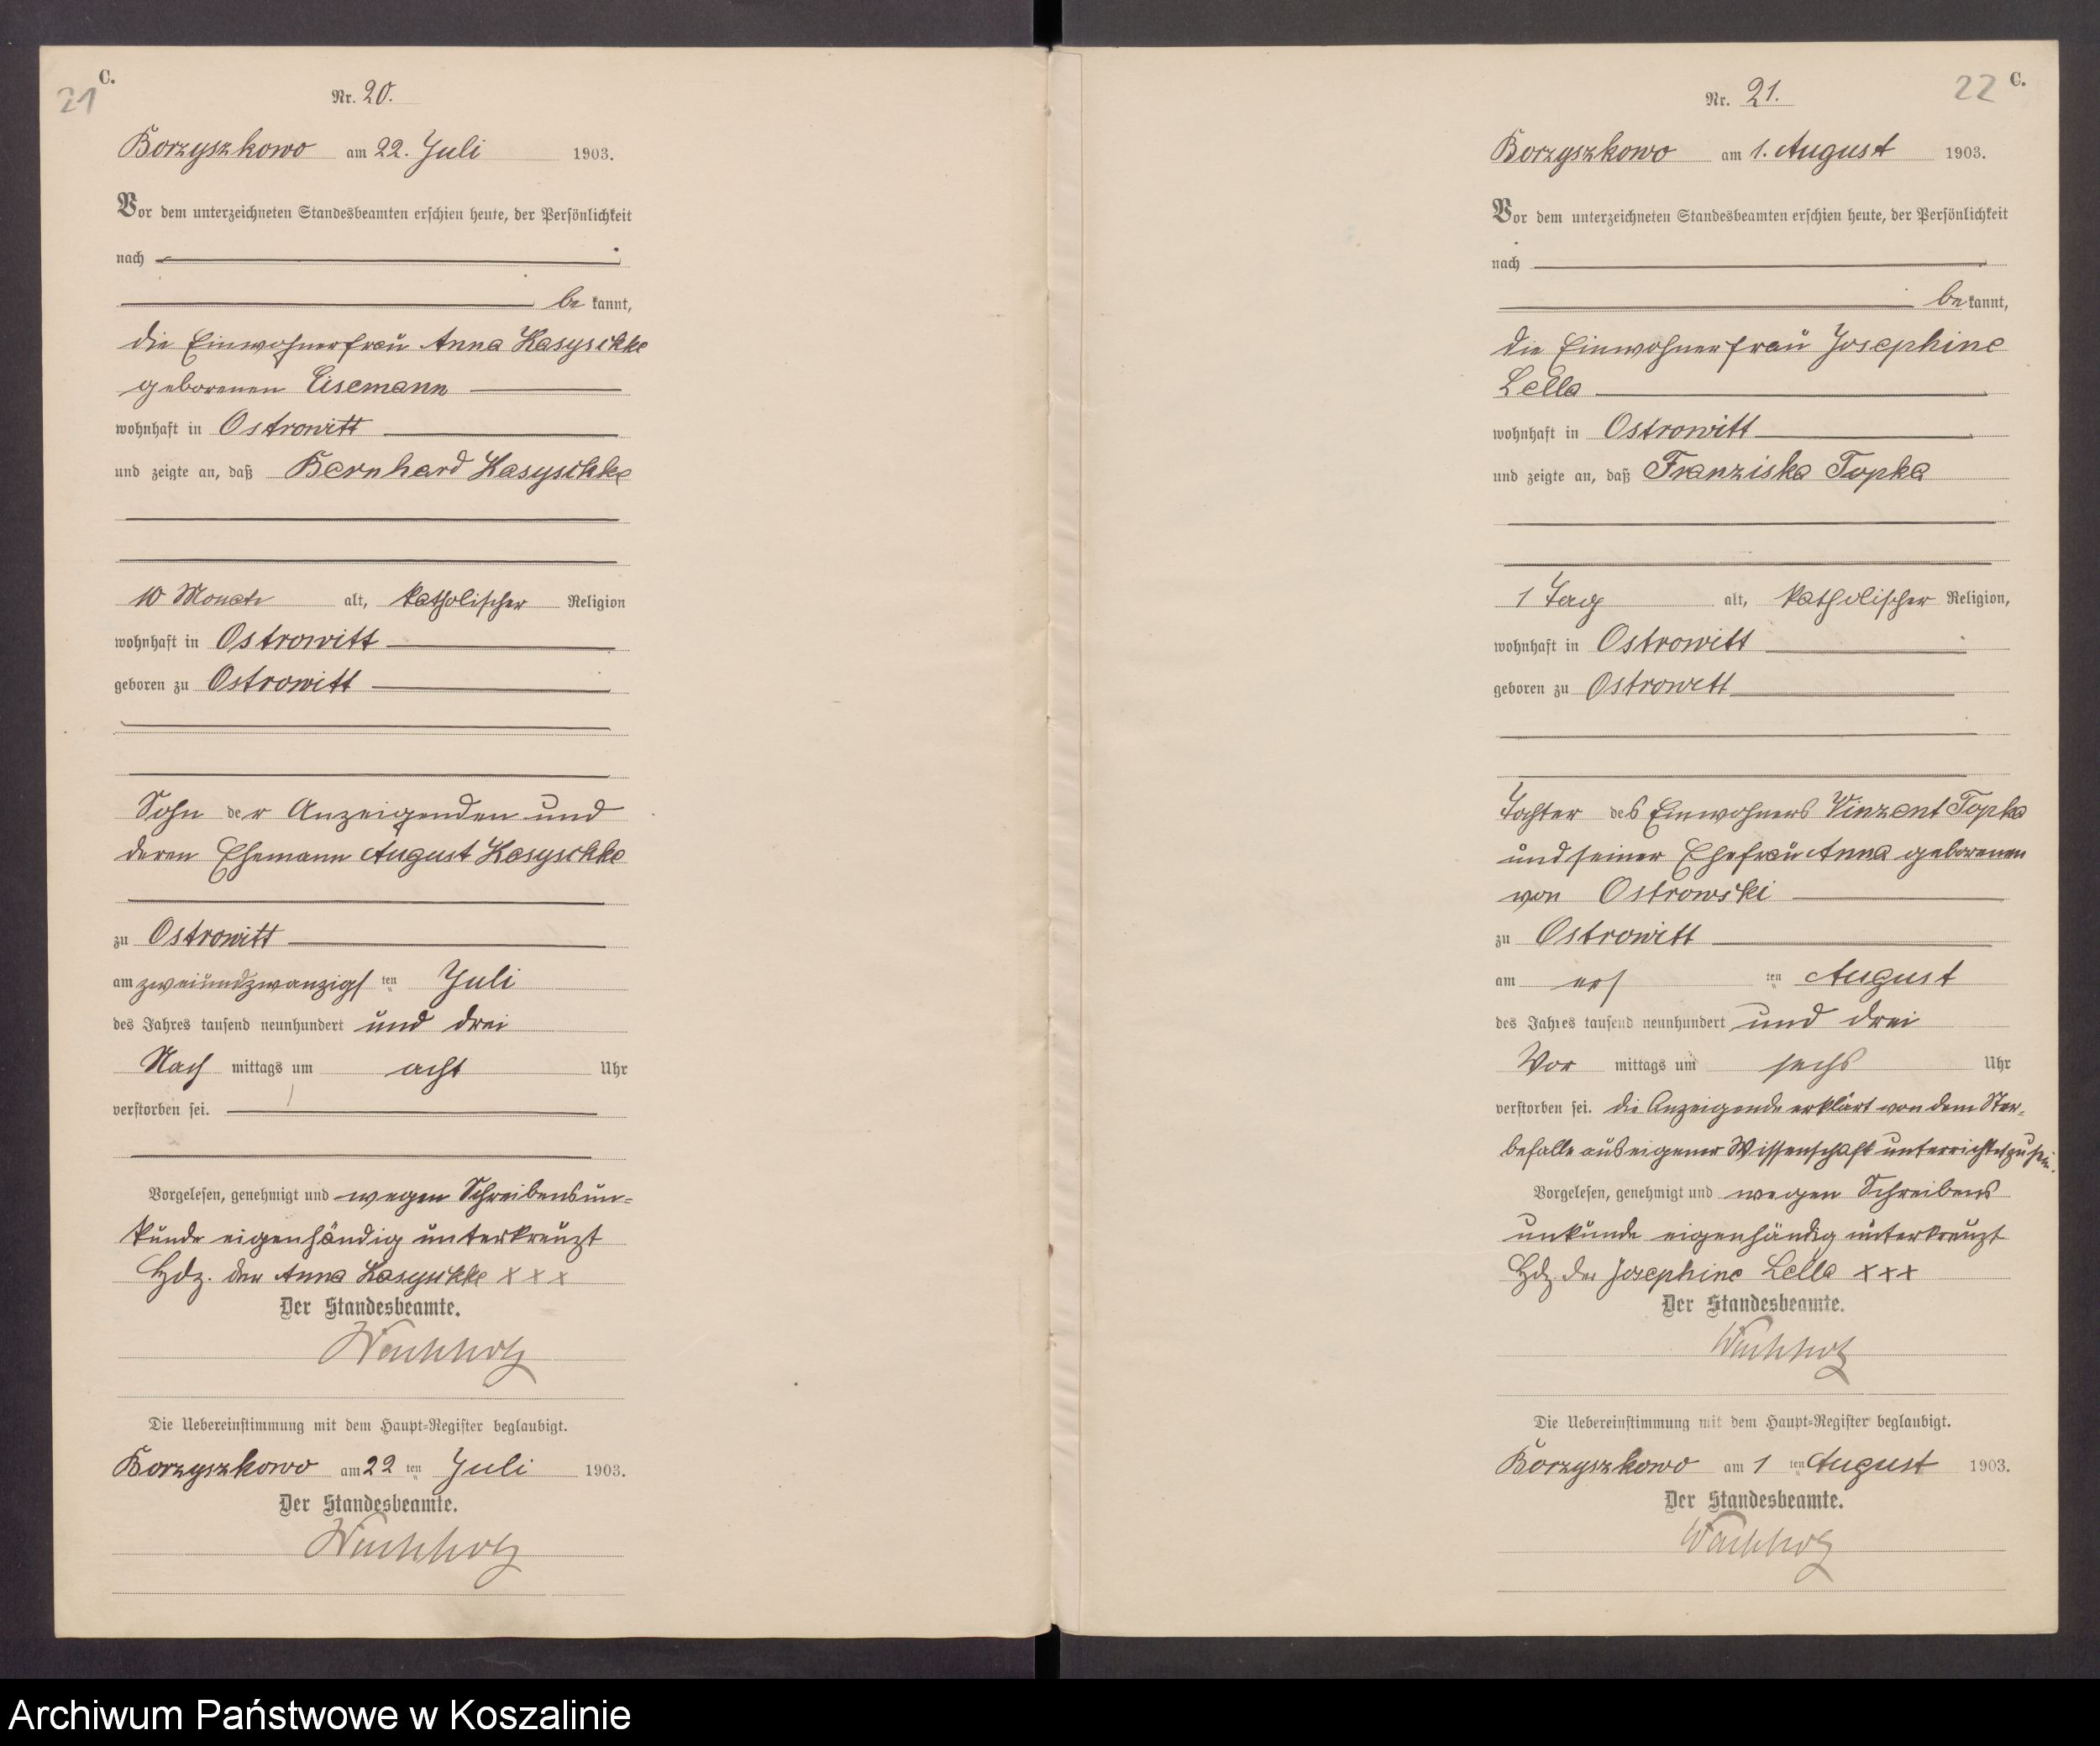 C.
21
Nr. 20.
Borzyszkowo am 22. Juli 1903.
Vor dem unterzeichneten Standesbeamten erschien heute, der Persönlichkeit
nach
be kannt,
die Einwohnerfrau Anna Kasyschke
geborenen Eisemann
wohnhaft in Ostrowitt
und zeigte an, daß Bernhard Kasyschke
10 Monate alt, katholischer Religion
wohnhaft in Ostrowitt
geboren zu Ostrowitt
Sohn der Anzeigenden und
deren Ehemann August Kasyschke
zu Ostrowitt
am zweiundzwanzigsten Juli
des Jahres tausend neunhundert und drei
Nach mittags um acht Uhr
verstorben sei.
Vorgelesen, genehmigt und wegen Schreibensun-
kunde eigenhändig unterkreuzt
Hdz. der Anna Kasyschke x x x
Der Standesbeamte.
Die Uebereinstimmung mit dem Haupt-Register beglaubigt.
Borzyszkowo am 22 ten Juli 1903.
Der Standesbeamte.
22 C.
Nr. 21.
Borzyszkowo am 1. August 1903.
Vor dem unterzeichneten Standesbeamten erschien heute, der Persönlichkeit
nach
be kannt,
die Einwohnerfrau Josephine
Lella
wohnhaft in Ostrowitt
und zeigte an, daß Franziska Topka
1 Tag alt, katholischer Religion,
wohnhaft in Ostrowitt
geboren zu Ostrowitt
Tochter des Einwohners Vinzent Topka
und seiner Ehefrau Anna geborenen
von Ostrowski
zu Ostrowitt
am ersten August
des Jahres tausend neunhundert und drei
Vor mittags um sechs Uhr
verstorben sei. die Anzeigende erklärt von dem Ster-
befalle aus eigener Wissenschaft unterrichtet zu sein.
Vorgelesen, genehmigt und wegen Schreibens
unkunde eigenhändig unterkreuzt
Hdz. der Josephine Lella x x x
Der Standesbeamte.
Die Uebereinstimmung mit dem Haupt-Register beglaubigt.
Borzyszkowo am 1 ten August 1903.
Der Standesbeamte.
Archiwum Państwowe w Koszalinie